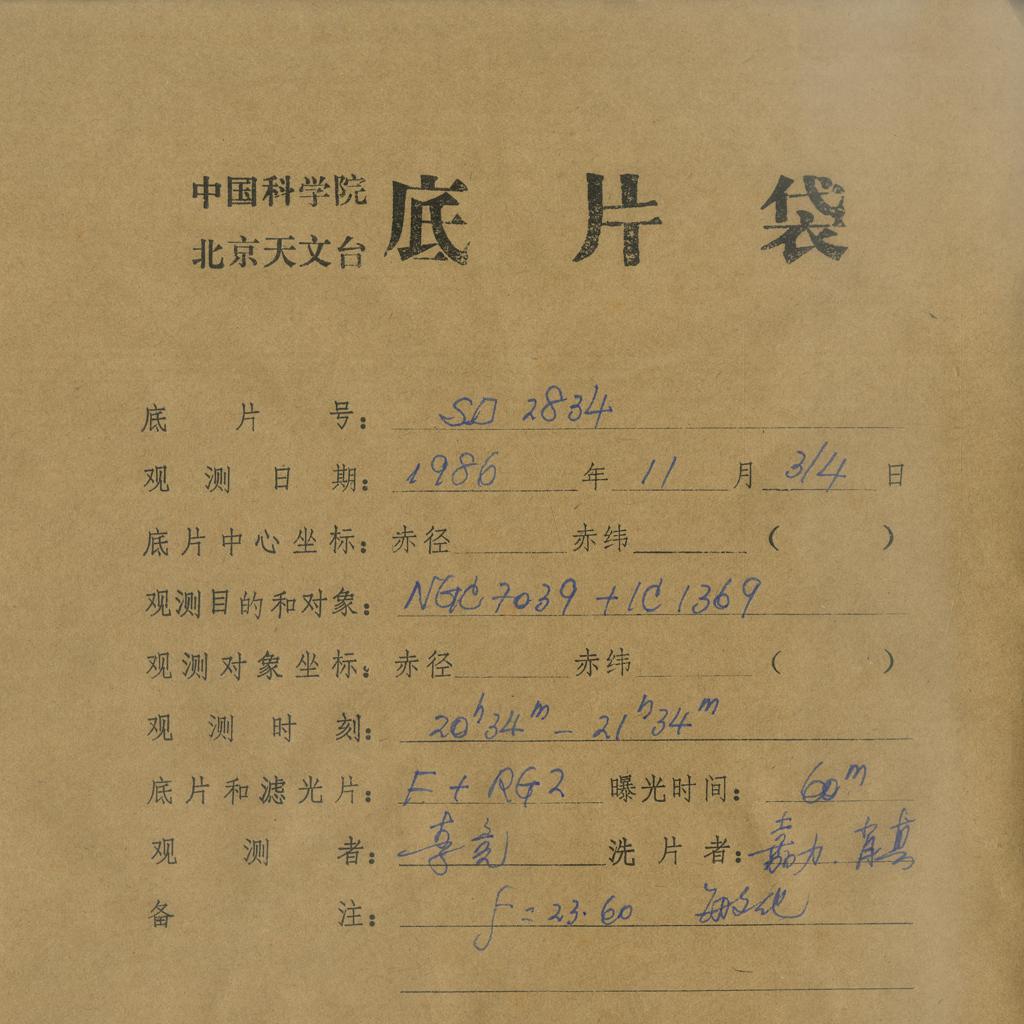 中国科学院
北京天文台
底片袋
底片号： SD 2834
观测日期： 1986 年 11 月 3/4 日
底片中心坐标：赤径 赤纬 （ ）
观测目的和对象： NGC 7039 + IC 1369
观测对象坐标：赤径 赤纬 （ ）
观测时刻： 20h34m - 21h34m
底片和滤光片： F + RG2 曝光时间： 60m
观测者： 洗片者：
备注： f = 23.60